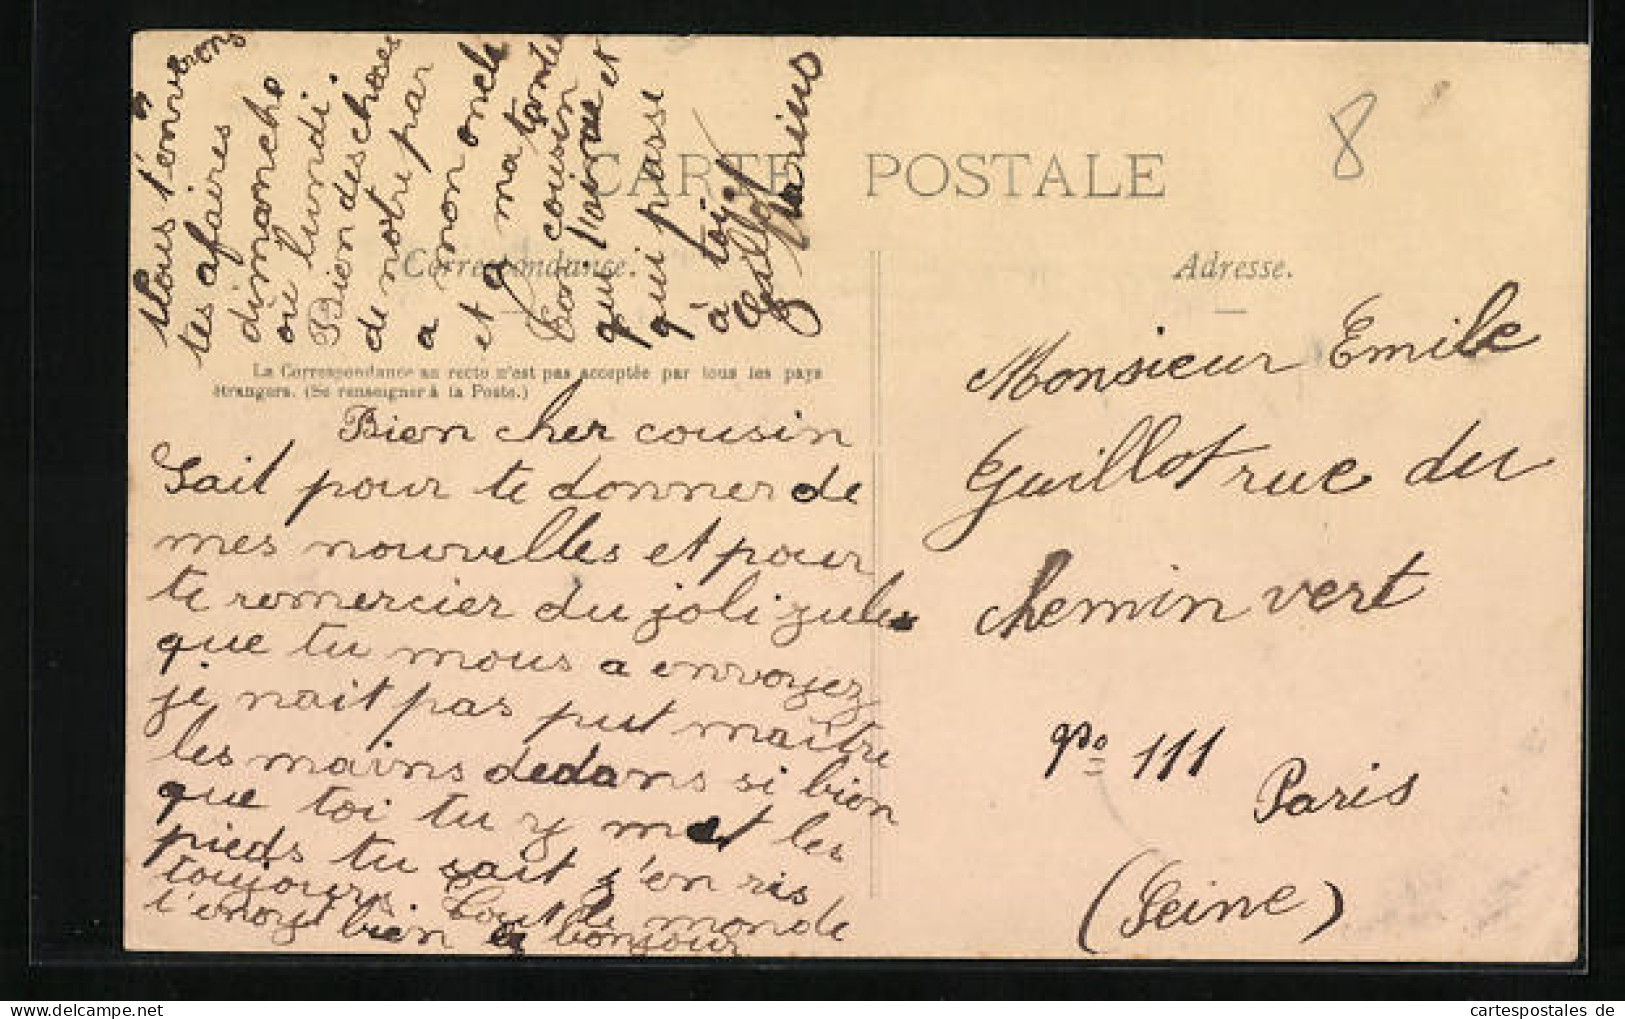 8
CARTE POSTALE
Correspondance.
Adresse.
La Correspondance au recto n'est pas acceptée par tous les pays
étrangers. (Se renseigner à la Poste.)
Bien cher cousin
pour te donner de
mes nouvelles et pour
te remercier du joli
que tu mous a envoyez
je nait pas put maitre
les mains dedans si bien
que toi tu y met les
pieds tu sait j'en ris
toujours Tout le monde
t'envoyt bien bonjour
Nous t'enverrons
tes afaires
dimanche
ou lundi
Bien des choses
de notre par
a mon oncle
et a ma tante
Ton cousin
qui l'aime et
qui passe
à toi
Marius
Monsieur Emile
Guillot rue du
chemin vert
no 111
Paris
(Seine)
cartespostales de